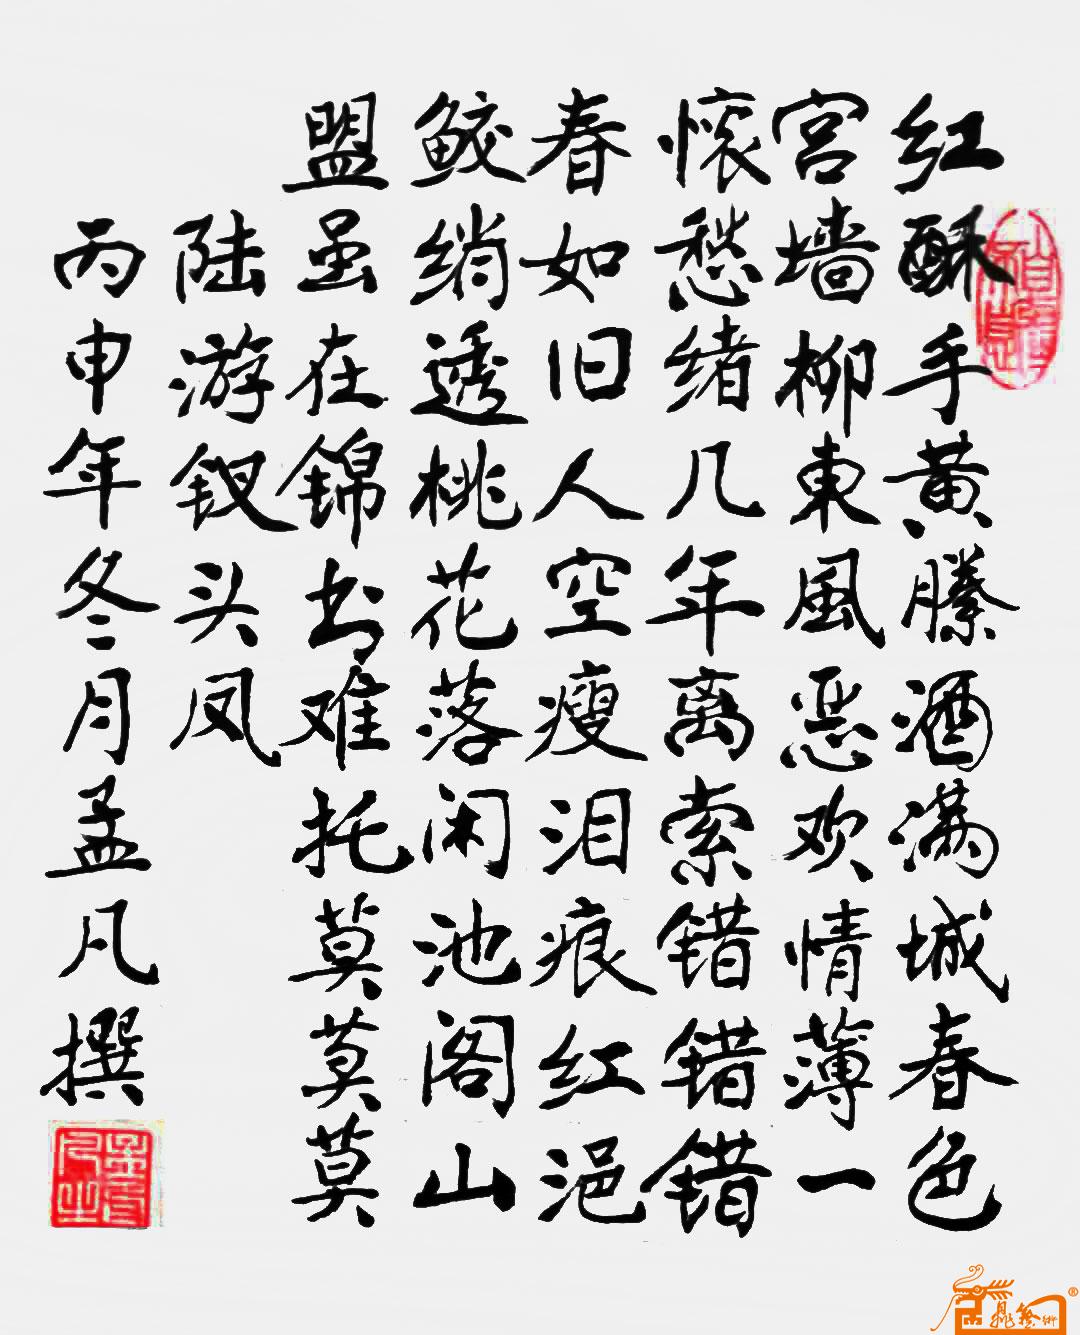 红酥手黄縢酒满城春色
宫墙柳東風恶欢情薄一
怀愁绪几年离索错错错
春如旧人空瘦泪痕红浥
鲛绡透桃花落闲池阁山
盟虽在锦书难托莫莫莫
陆游钗头凤
丙申年冬月孟凡撰